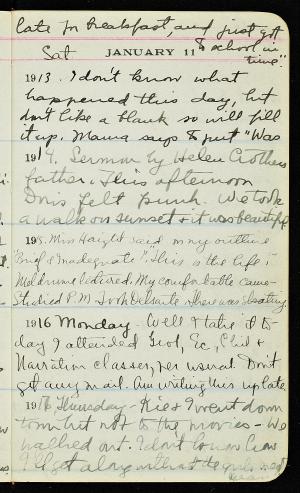 late for breakfast, and just got
to school in
time."
Sat. JANUARY 11
1913. I don't know what
happened this day, but
don't like a blank so will fill
it up. Mama says to put "Was
1914. Sermon by Helen Crothers
father. This afternoon
Doris felt punk. We took
a walk on sunset & it was beautiful
1915. Mrs Haight said on my outline
"Brief & Inadequate". This is the life!
Meldrum lectured. My comfortable came
Studied P.M. Took where was skating.
1916 Monday - Well & take it to-
day I attended Geol, Ec, Child &
Narration classes, per usual. Don't
get any mail. Am writing this up late
191 Thursday - Kie & I went down
town but not to the movies - We
walked out. I don't know how
I'll get along without the